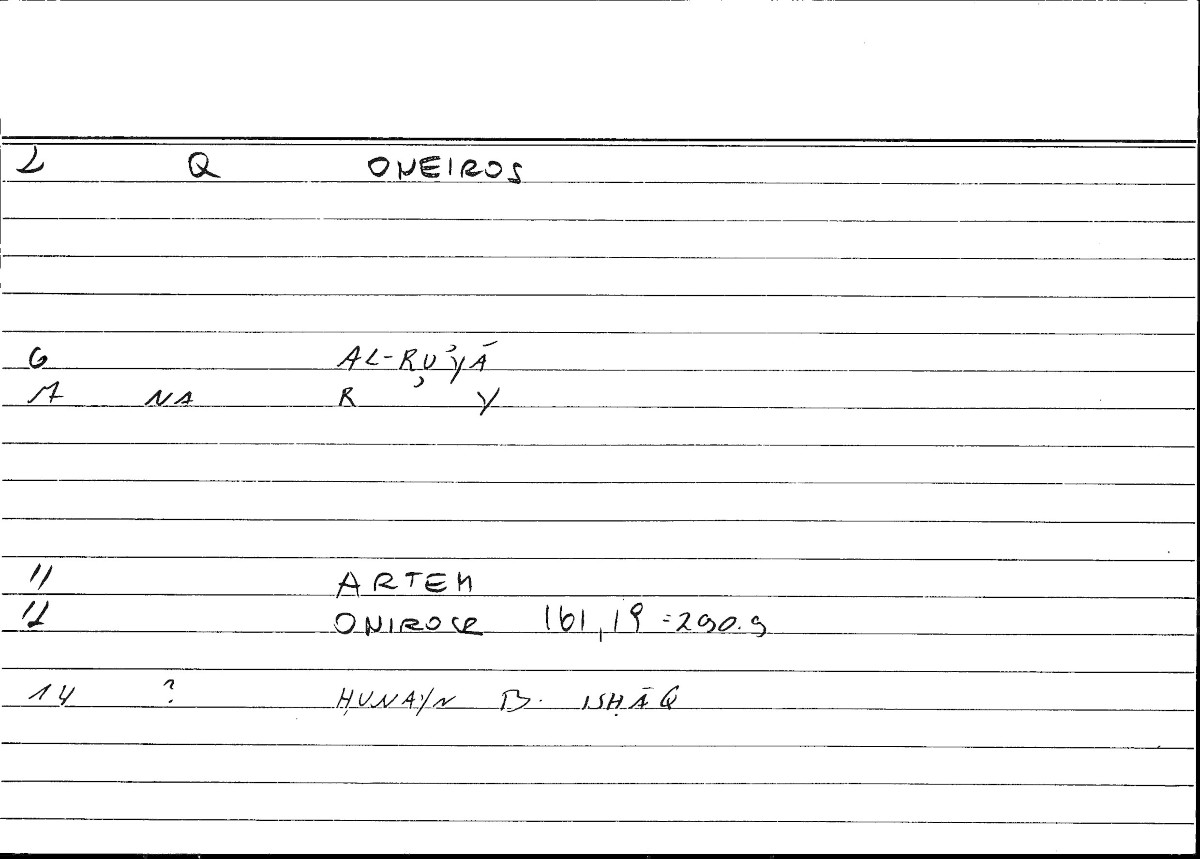 2 Q ONEIROS
6 AL-RU'YĀ
7 NA R ʾ Y
11 ARTEM
12 ONIROCR 161,19 =290.9
14 ? ḤUNAYN B. ISḤĀQ